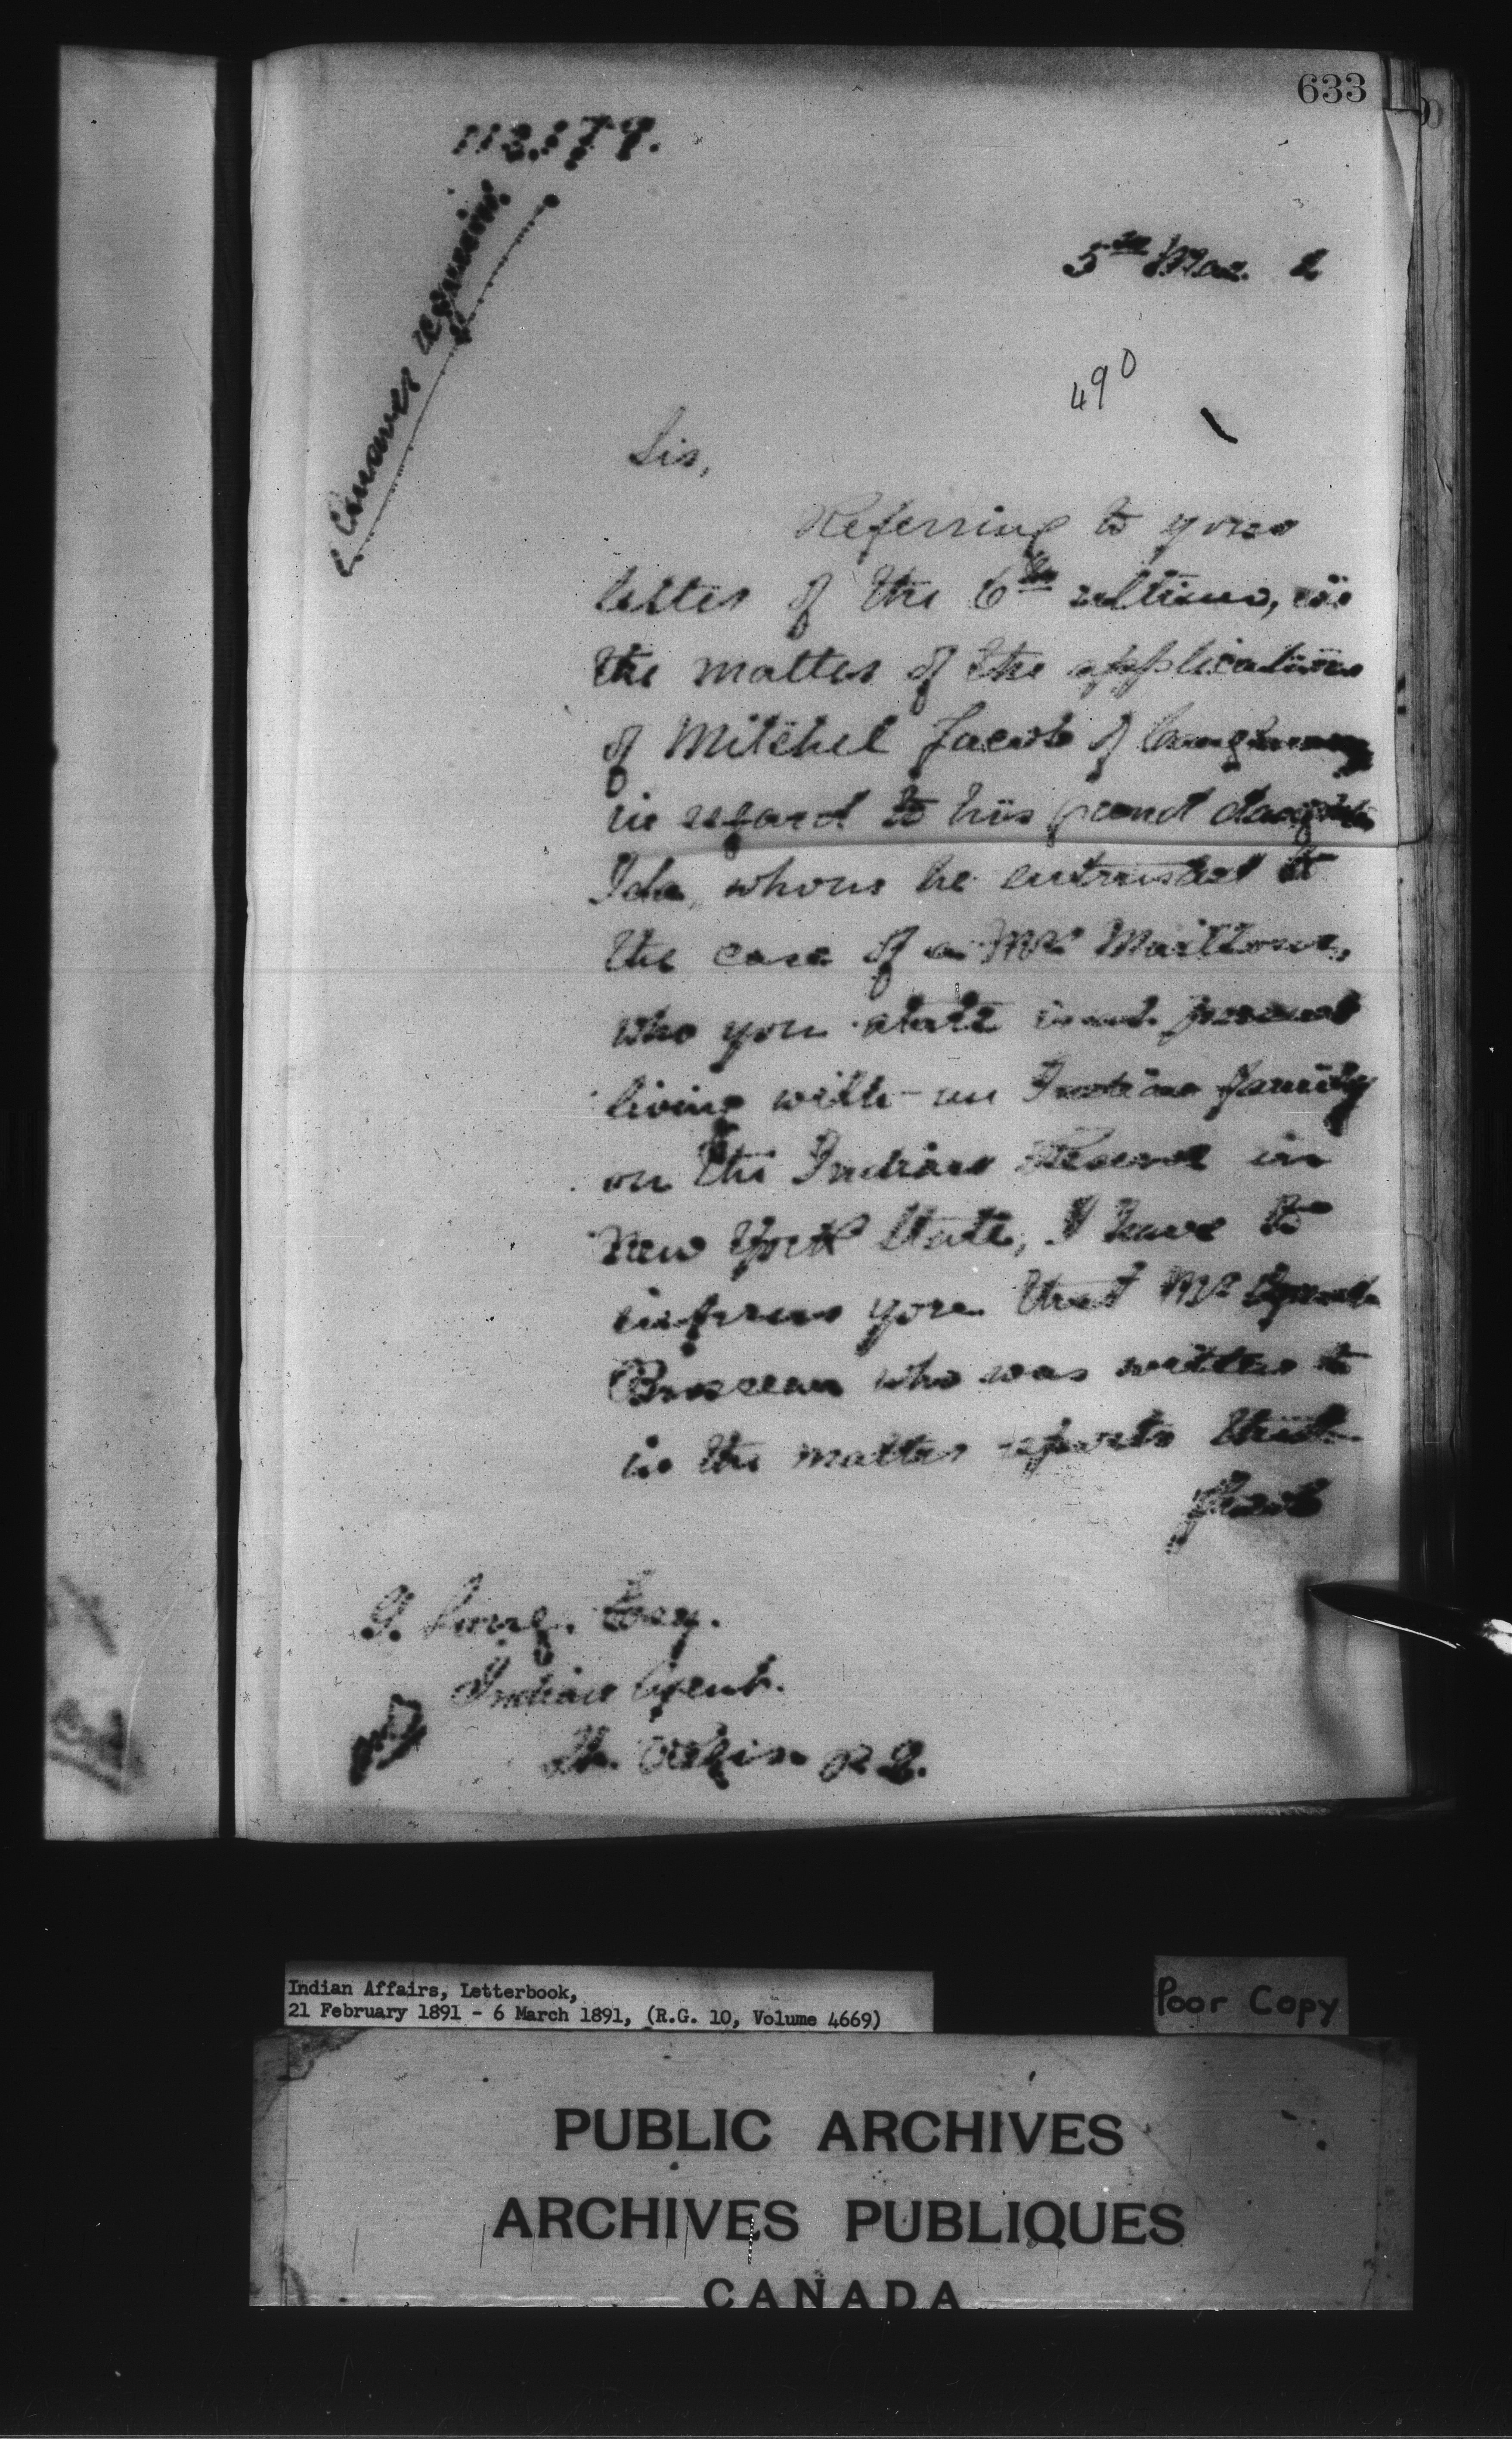 633
112.179.
Answer required.
5th Mar. 1
490
Sir,
Referring to your
letter of the 6th ultimo, in
the matter of the application
of Mitchel Jacob of Caughnawaga
in regard to his grand daughter
Ida, whom he entrusted to
the care of a Mrs
who you state is at present
living with an Indian family
on the Indian Reserve in
New York State, I have to
inform you that Mr
Brosseau who was written to
in the matter reports that
Jacob
Long. Esq.
Indian Agent.
St. Regis. P.Q.
Indian Affairs, Letterbook,
21 February 1891 - 6 March 1891, (R.G. 10, Volume 4669)
Poor Copy
PUBLIC ARCHIVES
ARCHIVES PUBLIQUES
CANADA